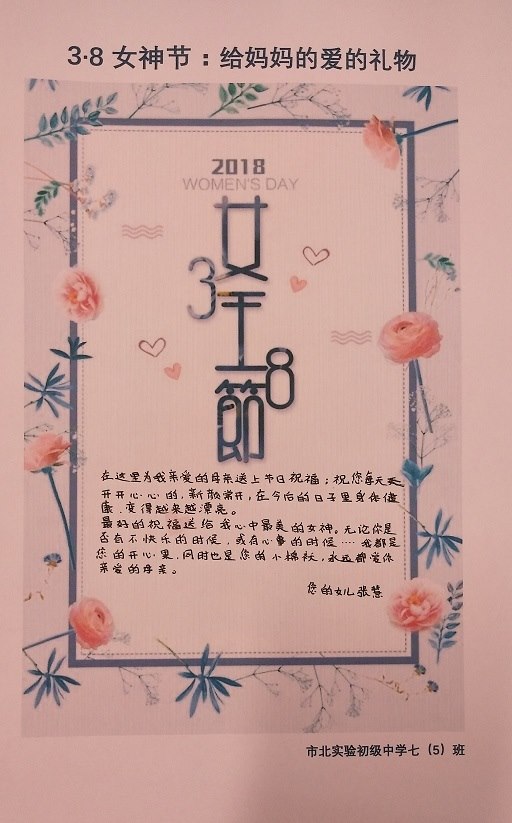 3·8 女神节：给妈妈的爱的礼物
2018
WOMEN'S DAY
女
3
王
8
節
在这里为我亲爱的母亲送上节日祝福；祝您每天天
开开心心的，新颜常开，在今后的日子里身体健
康，变得越来越漂亮。
最好的祝福送给我心中最美的女神。无论你是
否有不快乐的时候，或有心事的时候……我都是
您的开心果，同时也是您的小棉袄，永远都爱你
亲爱的母亲。
您的女儿张慧
市北实验初级中学七（5）班